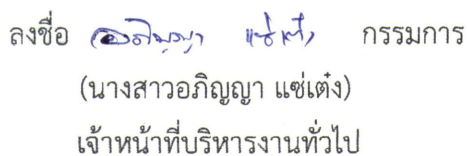 ลงชื่อ อภิญญา แซ่เต๋ง กรรมการ
(นางสาวอภิญญา แซ่เต๋ง)
เจ้าหน้าที่บริหารงานทั่วไป